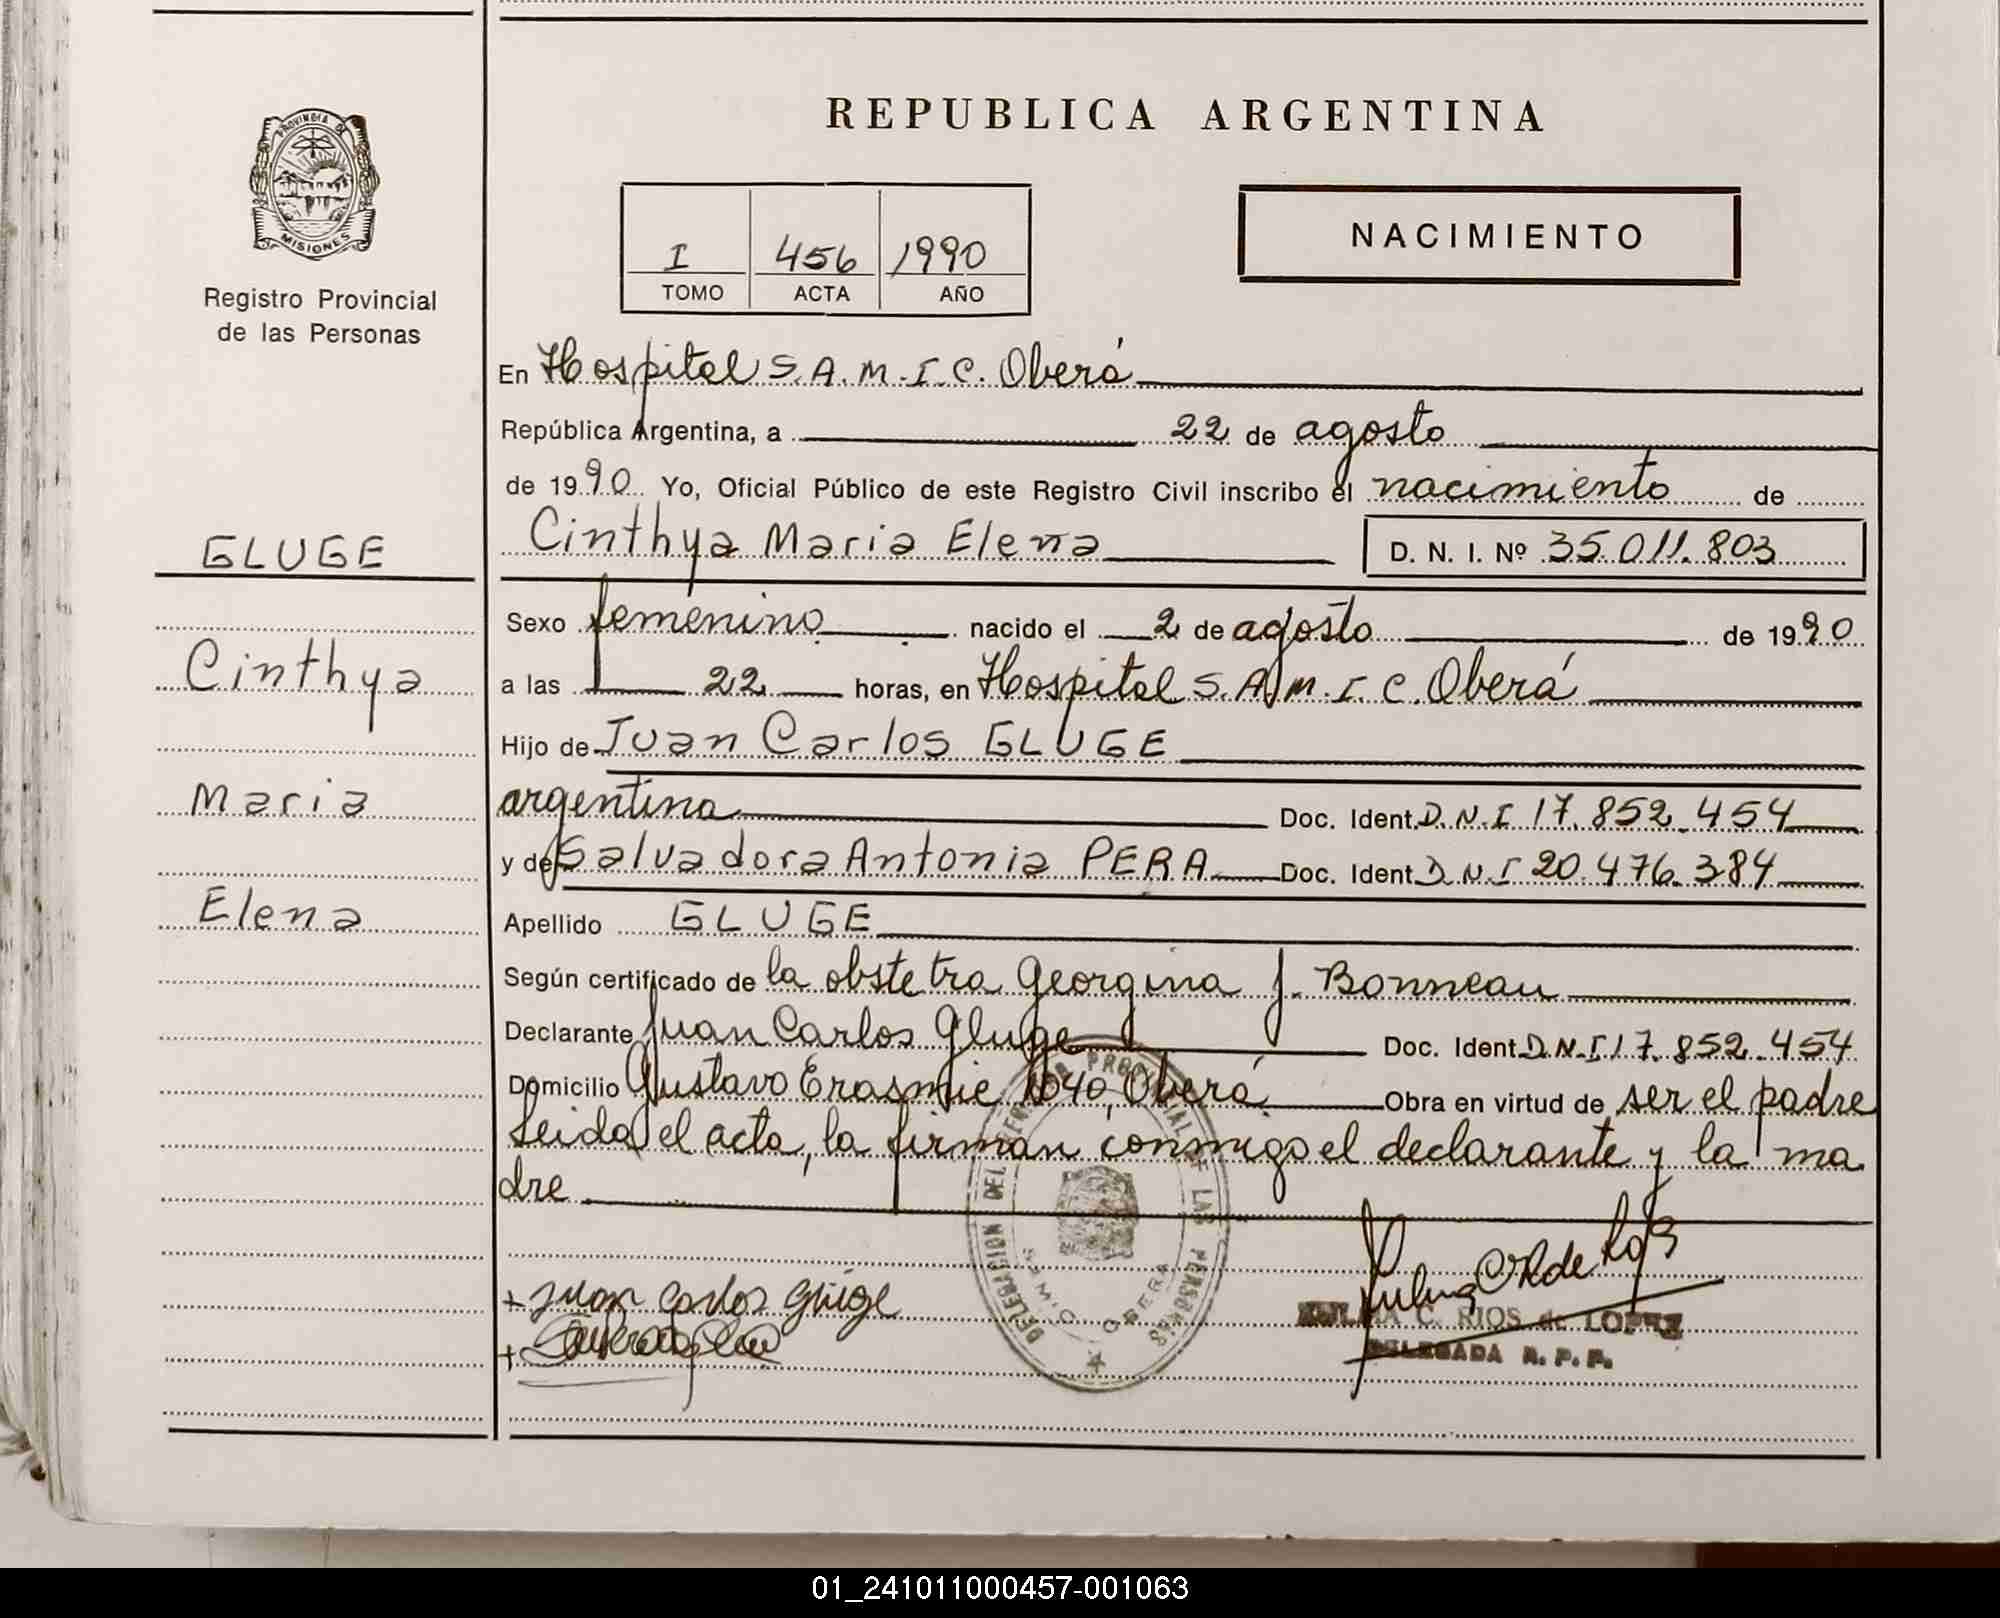 REPUBLICA ARGENTINA
PROVINCIA DE
MISIONES
Registro Provincial
de las Personas
I 456 1990
TOMO ACTA AÑO
NACIMIENTO
En Hospital S.A.M.I.C. Oberá
República Argentina, a 22 de agosto
de 1990 Yo, Oficial Público de este Registro Civil inscribo el nacimiento de
GLUGE
Cinthya Maria Elena D. N. I. Nº 35.011.803
Sexo femenino nacido el 2 de agosto de 1990
Cinthya
a las 22 horas, en Hospital S.A.M.I.C. Oberá
Hijo de Juan Carlos GLUGE
Maria
argentina Doc. Ident. D.N.I 17.852.454
y de Salvadora Antonia PERA Doc. Ident. D.N.I 20.476.384
Elena
Apellido GLUGE
Según certificado de la obstetra Georgina J. Bonneau
Declarante Juan Carlos Gluge Doc. Ident. D.N.I 17.852.454
Domicilio Gustavo Erasmie 1040, Oberá Obra en virtud de ser el padre
Leida el acta, la firman conmigo el declarante y la ma
dre
DELEGACION DEL REGISTRO PROVINCIAL DE LAS PERSONAS
OBERA
+ Juan Carlos Gluge
+
C. RIOS de LOPEZ
DELEGADA R. P. P.
01_241011000457-001063